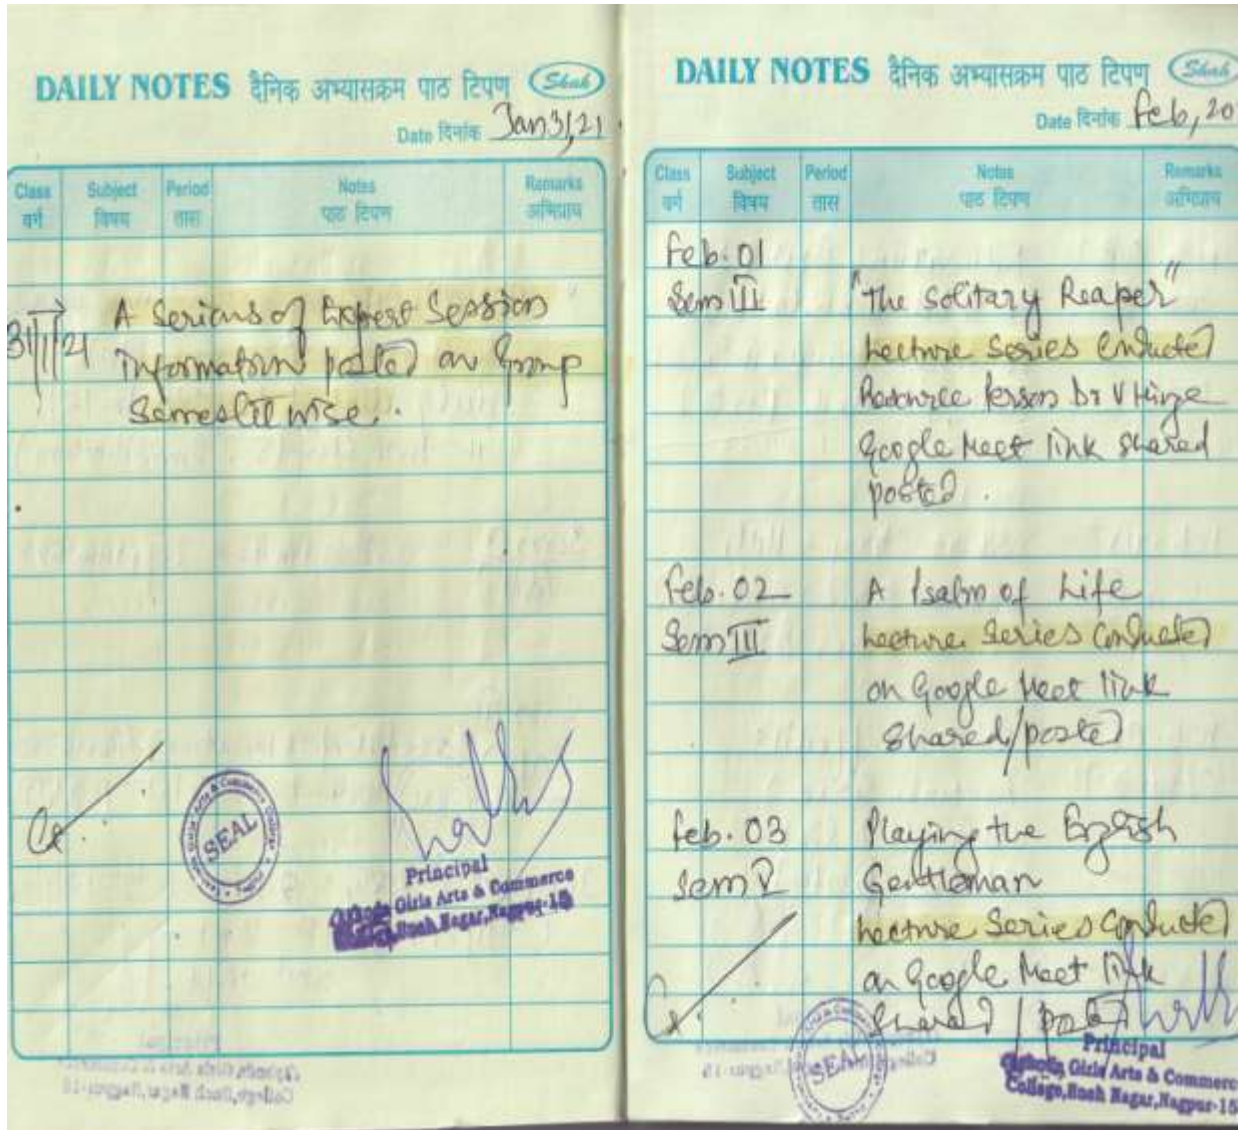 DAILY NOTES दैनिक अभ्यासक्रम पाठ टिपण Shah
Date दिनांक Jan 31, 21
Class Subject Period Notes Remarks
वर्ग विषय तास पाठ टिपण अभिप्राय
A Serious of Expert Session
31/1/21 information posted on Group
Semester wise.
SEAL
Principal
Girls Arts & Commerce
Nagar, Nagpur-15
DAILY NOTES दैनिक अभ्यासक्रम पाठ टिपण Shah
Date दिनांक Feb, 20
Class Subject Period Notes Remarks
वर्ग विषय तास पाठ टिपण अभिप्राय
Feb. 01
Sem III "The Solitary Reaper"
Lecture Series Conducted
Resource Person Dr V
Google Meet link shared
posted.
Feb. 02 A Psalm of Life
Sem III Lecture Series Conducted
on Google Meet link
Shared/posted
Feb. 03 Playing the English
Sem V Gentleman
Lecture Series Conducted
on Google Meet link
Shared / posted
SEAL
Principal
Girls Arts & Commerc
College, Nagar, Nagpur-15